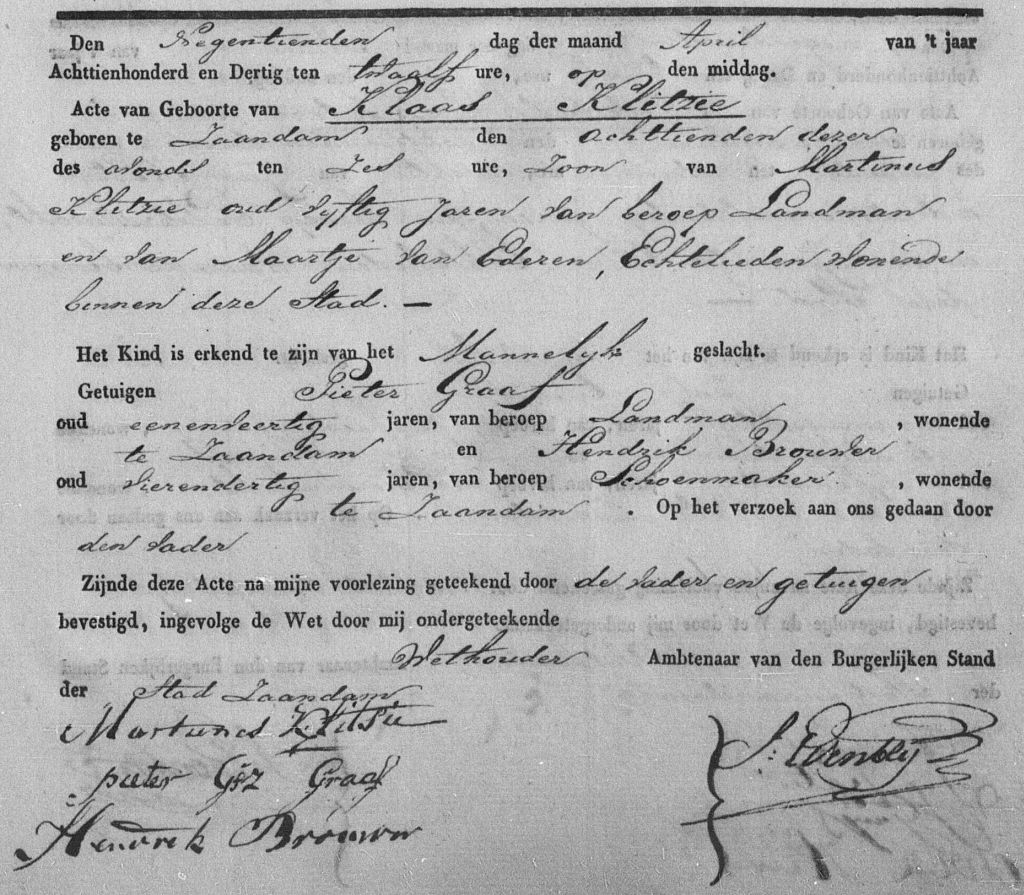 Den Negentienden dag der maand April van 't jaar
Achttienhonderd en Dertig ten twaalf ure, op den middag.
Acte van Geboorte van Klaas Klitzie
geboren te Zaandam den achttienden dezer
des avonds ten Zes ure, Zoon van Martinus
Klitzie oud vyftig Jaren van beroep Landman
en van Maartje van Ederen, Echtelieden wonende
binnen deze Stad. —
Het Kind is erkend te zijn van het Mannelyk geslacht.
Getuigen Pieter Graaf
oud eenenveertig jaren, van beroep Landman, wonende
te Zaandam en Hendrik Brouwer
oud vierendertig jaren, van beroep Schoenmaker, wonende
te Zaandam. Op het verzoek aan ons gedaan door
den vader
Zijnde deze Acte na mijne voorlezing geteekend door de vader en getuigen
bevestigd, ingevolge de Wet door mij ondergeteekende
Wethouder Ambtenaar van den Burgerlijken Stand
der Stad Zaandam
Martinus Klitsie
pieter Gsz Graaf
Hendrik Brouwer